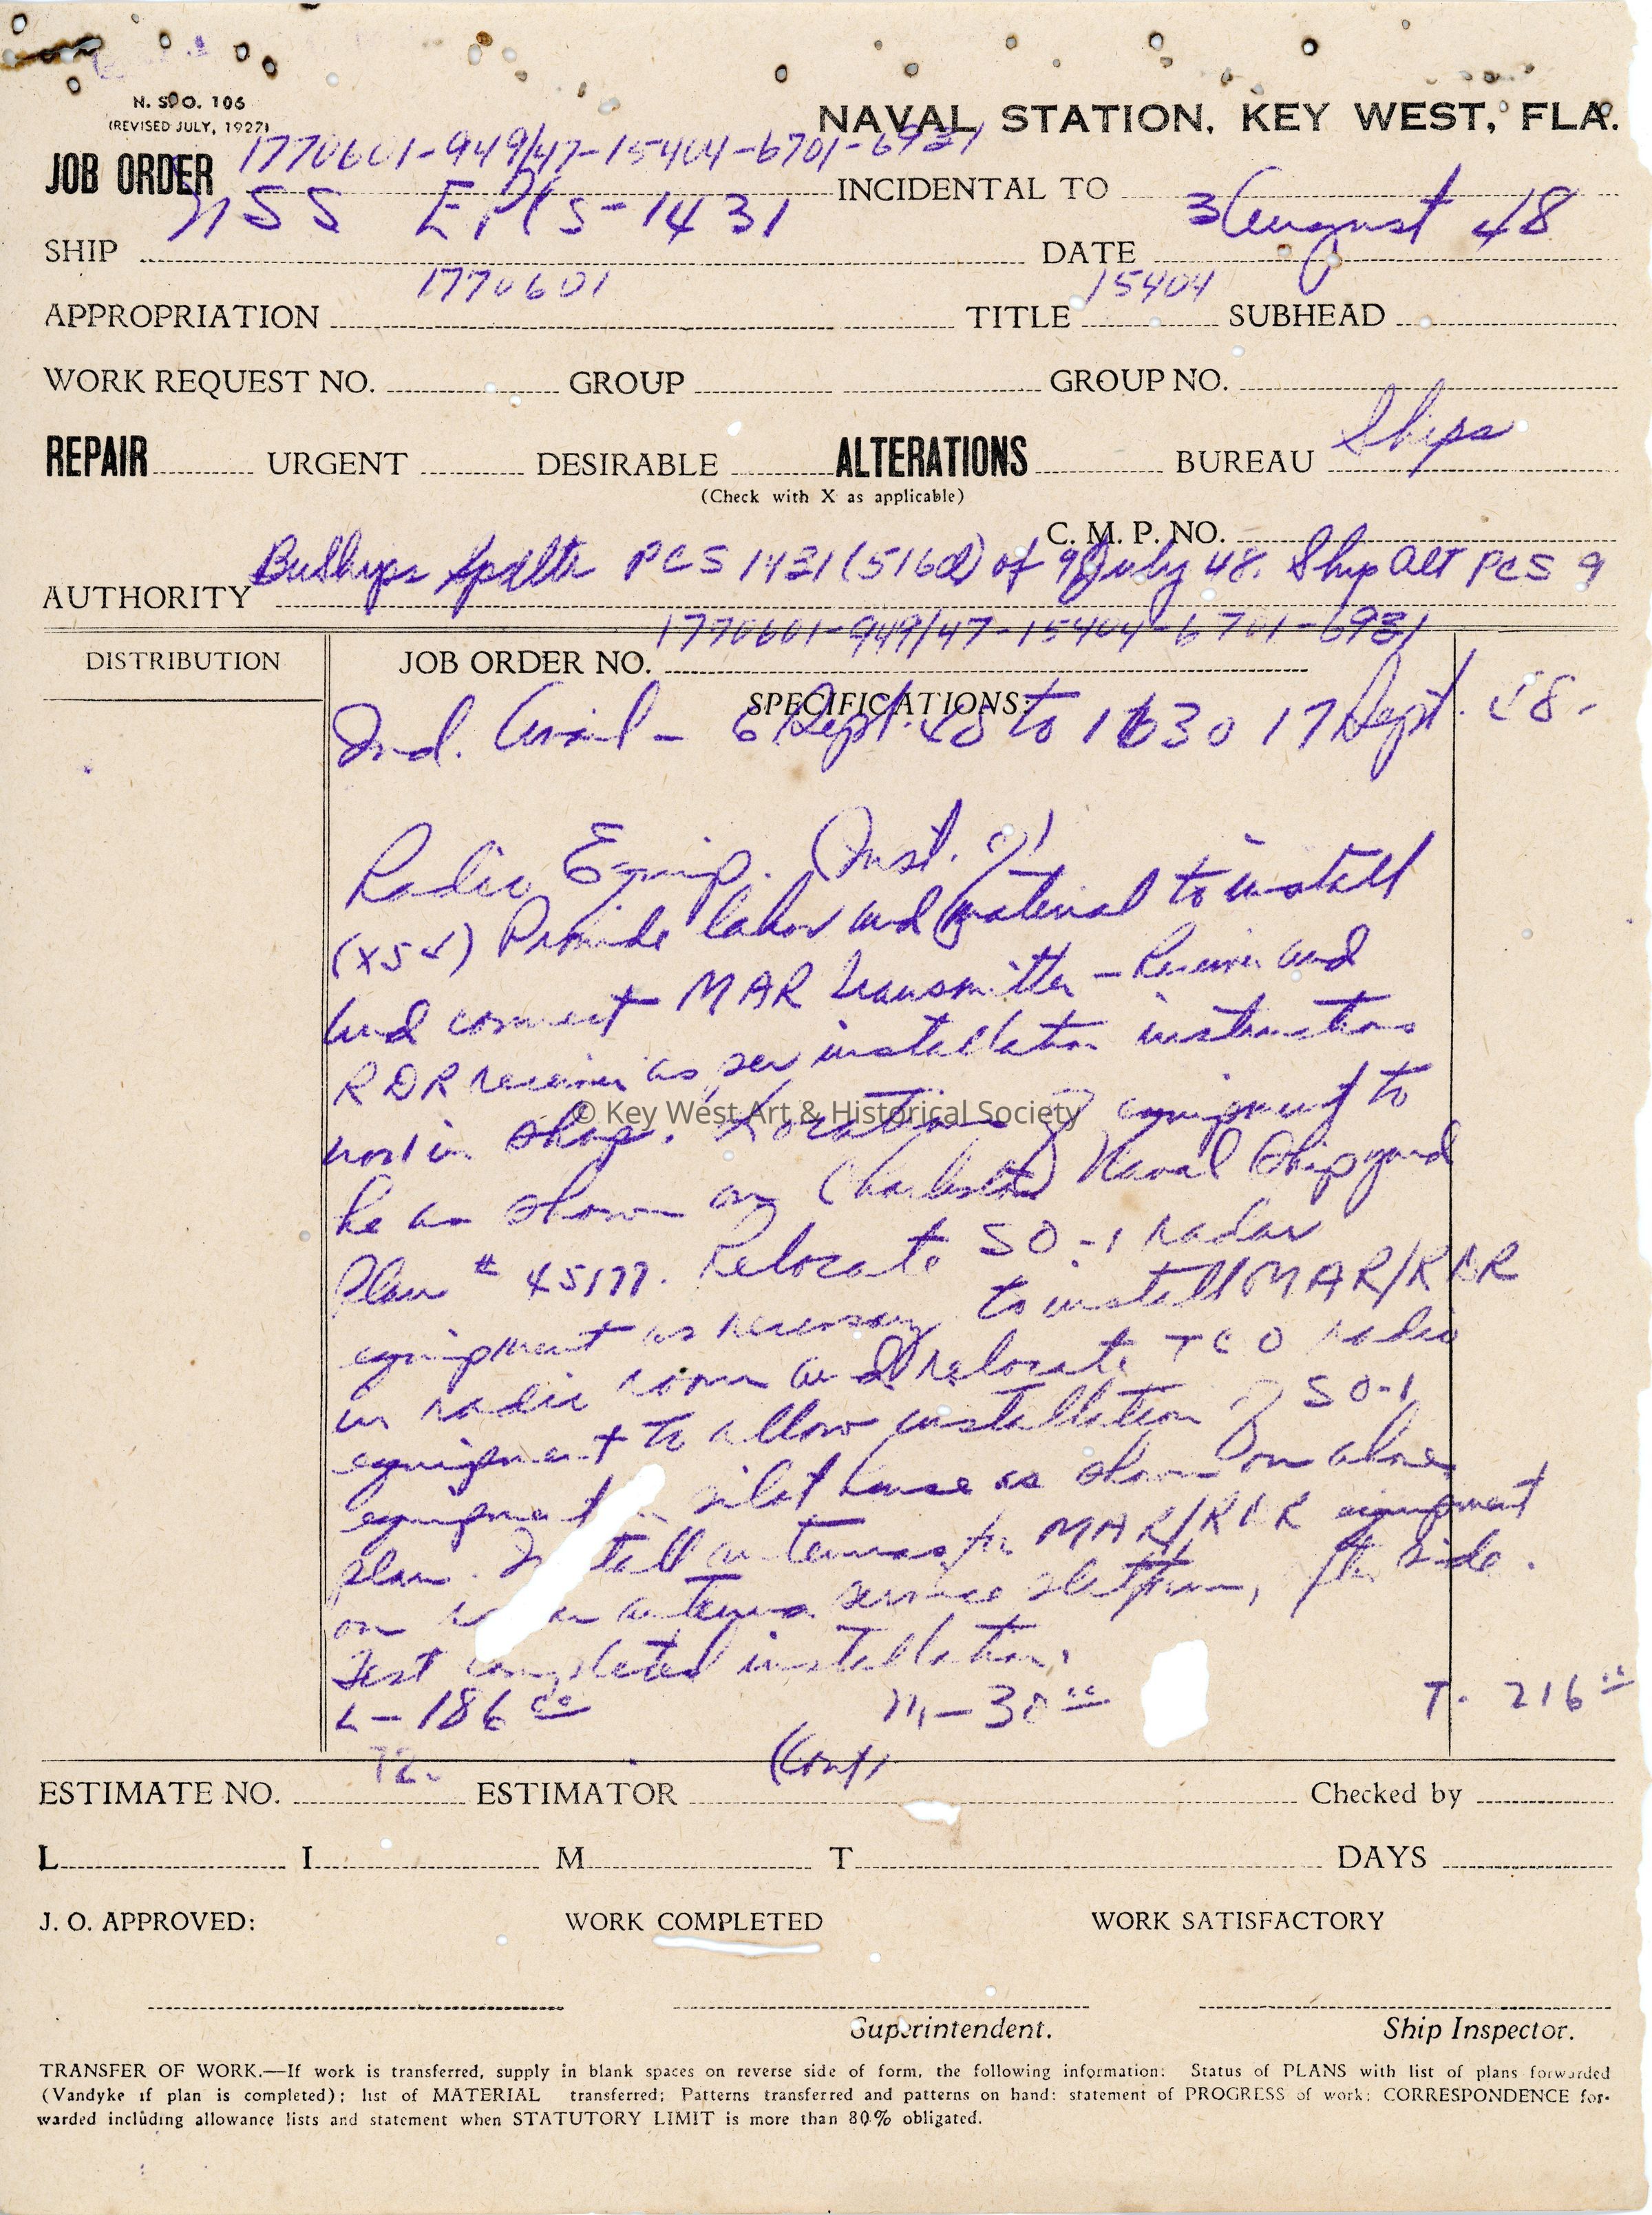 N. S. O. 106
(REVISED JULY, 1927)
NAVAL STATION, KEY WEST, FLA.
JOB ORDER 1770601-949/47-15404-6701-6931 INCIDENTAL TO
SHIP USS EPCS-1431 DATE 3 August 48
APPROPRIATION 1770601 TITLE 15404 SUBHEAD
WORK REQUEST NO. GROUP GROUP NO.
REPAIR URGENT DESIRABLE ALTERATIONS BUREAU Ships
(Check with X as applicable)
C. M. P. NO.
AUTHORITY BuShips PCS 1431 (516d) of 9 July 48. Ship Alt PCS 9
DISTRIBUTION
JOB ORDER NO. 1770601-949/47-15404-6701-6931
SPECIFICATIONS:
Ind. Avail - 6 Sept. 48 to 1630 17 Sept. 48.
Radio Equip. (Inst. of)
(X54) Provide labor and material to install
and connect MAR transmitter - Receiver and
RDR receiver as per installation instructions
now in shop. Location of equipment to
be as shown on Charleston Naval Shipyard
Plan # 45177. Relocate SO-1 radar
equipment as necessary to install MAR/RDR
in radio room and relocate TCO radio
equipment to allow installation of SO-1
equipment in pilot house as shown on above
plan. Install antennas for MAR/RDR equipment
on antenna service platform, side.
Test completed installation.
L - 186 00 M - 30 00 T. 216 00
72. (Cont)
© Key West Art & Historical Society
ESTIMATE NO. ESTIMATOR Checked by
L I M T DAYS
J. O. APPROVED: WORK COMPLETED WORK SATISFACTORY
Superintendent. Ship Inspector.
TRANSFER OF WORK.—If work is transferred, supply in blank spaces on reverse side of form, the following information: Status of PLANS with list of plans forwarded
(Vandyke if plan is completed); list of MATERIAL transferred; Patterns transferred and patterns on hand: statement of PROGRESS of work; CORRESPONDENCE for-
warded including allowance lists and statement when STATUTORY LIMIT is more than 80% obligated.